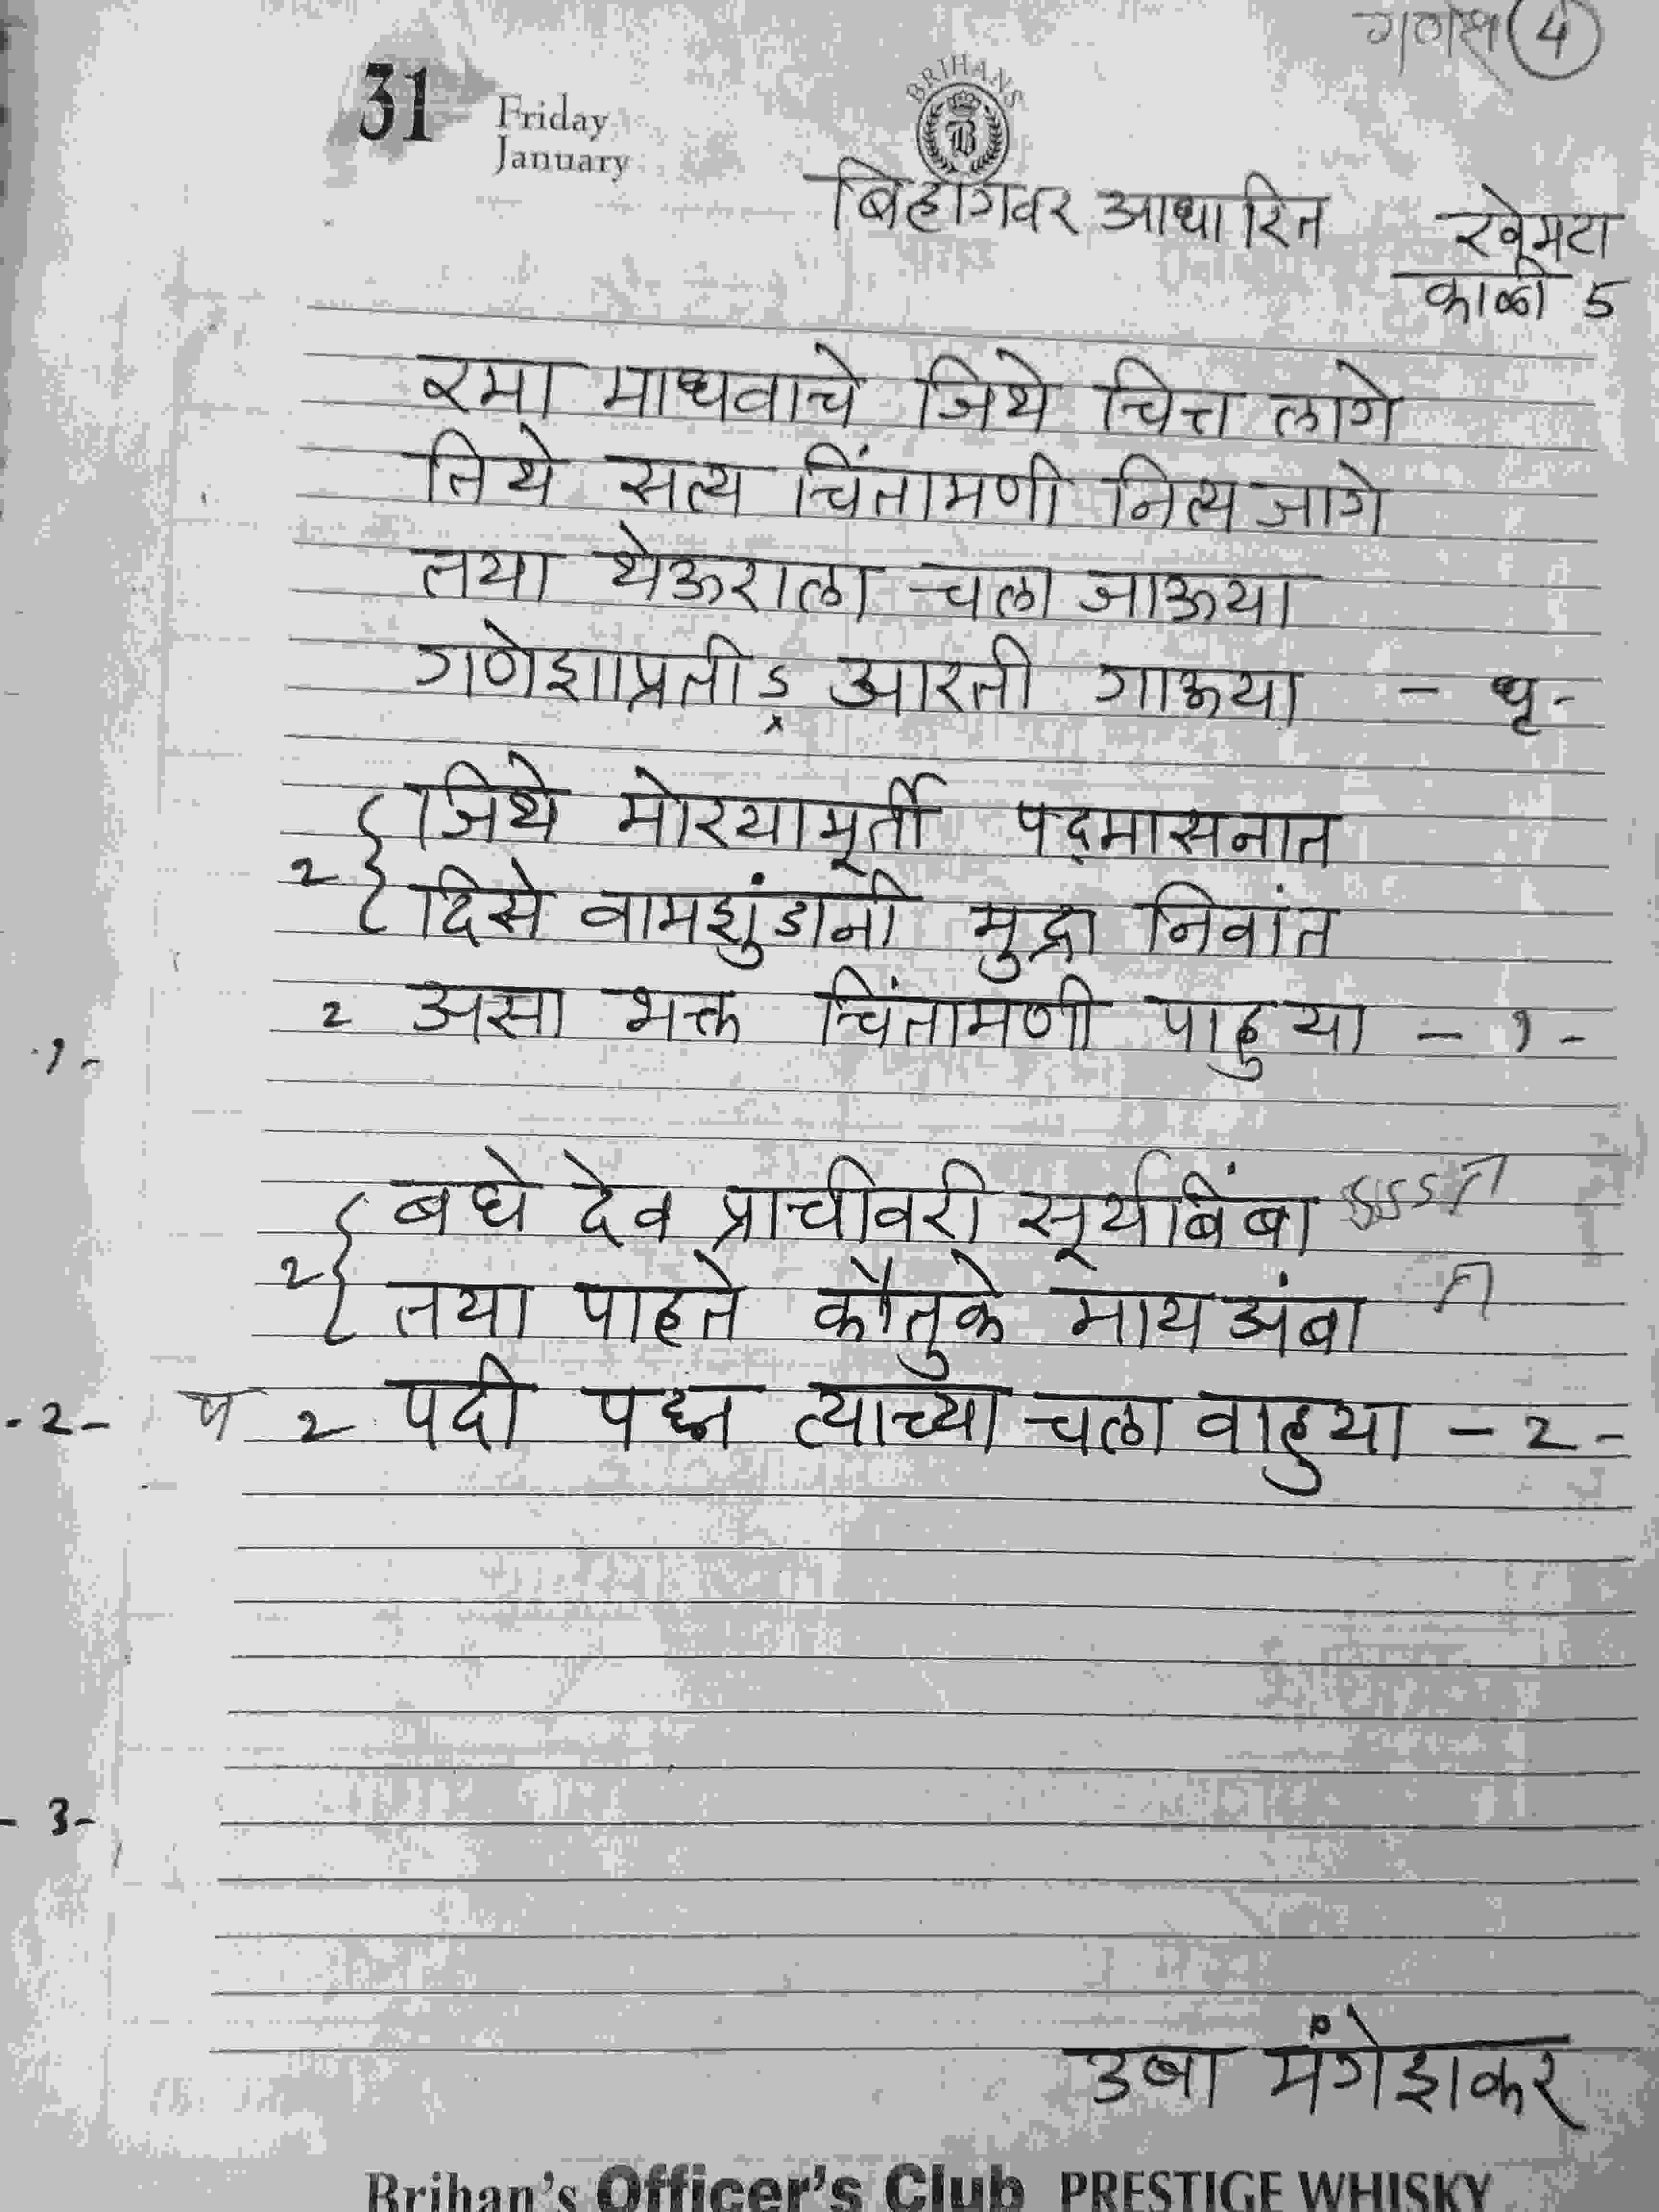 गणेश 4
31 Friday
January
BRIHANS
B
बिहागवर आधारित खेमटा
काळी 5
रमा माधवाचे जिथे चित्त लागे
तिथे सत्य चिंतामणी नित्य जागे
तया थेऊराला चला जाऊया
गणेशाप्रतीऽ आरती गाऊया - धृ-
जिथे मोरयामूर्ती पद्मासनात
2
दिसे वामशुंडानी मुद्रा निवांत
2 असा भक्त चिंतामणी पाहुया - १ -
-१-
बघे देव प्राचीवरी सूर्यबिंबा ऽऽऽऽ
2
तया पाहते कौतुके माय अंबा
-2- प 2 पदी पद्म त्याच्या चला वाहुया - 2 -
- 3-
उषा मंगेशकर
Brihan's Officer's Club PRESTIGE WHISKY